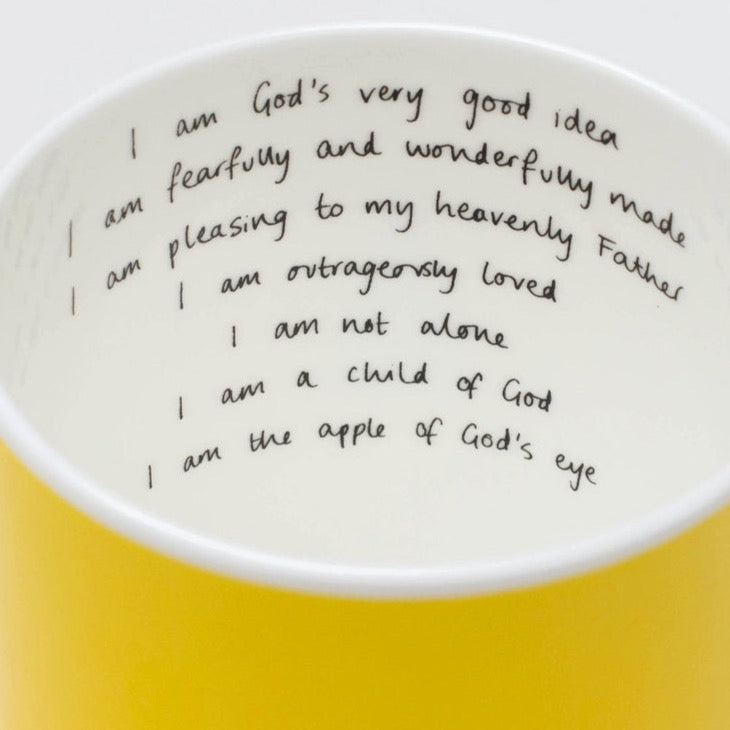 I am God's very good idea
I am fearfully and wonderfully made
I am pleasing to my heavenly Father
I am outrageously loved
I am not alone
I am a child of God
I am the apple of God's eye